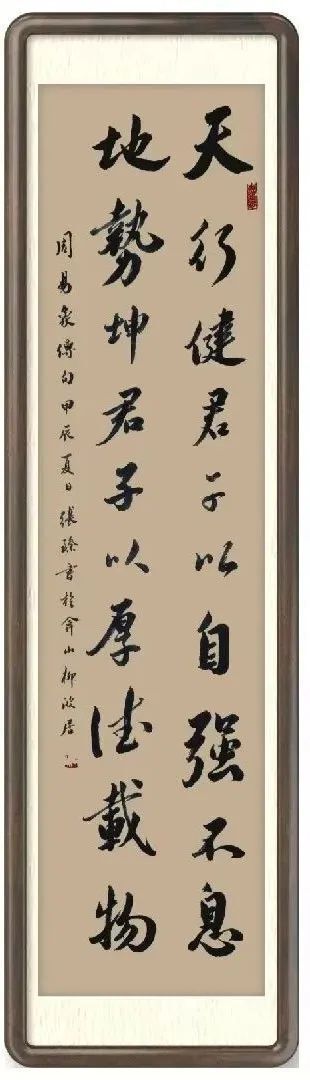 天行健君子以自强不息
地勢坤君子以厚德載物
周易象傳句甲辰夏日張 書於 山柳 居